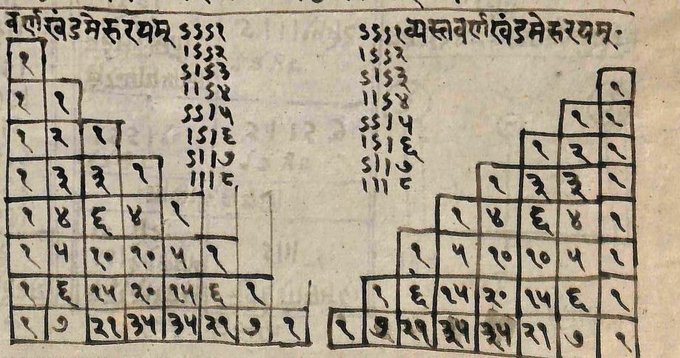 वर्णखंडमेरुरयम्
१
१ १
१ २ १
१ ३ ३ १
१ ४ ६ ४ १
१ ५ १० १० ५ १
१ ६ १५ २० १५ ६ १
१ ७ २१ ३५ ३५ २१ ७ १
ऽऽऽ१
।ऽऽ२
ऽ।ऽ३
।।ऽ४
ऽऽ।५
।ऽ।६
ऽ।।७
।।।८
ऽऽऽ१
।ऽऽ२
ऽ।ऽ३
।।ऽ४
ऽऽ।५
।ऽ।६
ऽ।।७
।।।८
व्यस्तवर्णखंडमेरुरयम्·
१
१ १
१ २ १
१ ३ ३ १
१ ४ ६ ४ १
१ ५ १० १० ५ १
१ ६ १५ २० १५ ६ १
१ ७ २१ ३५ ३५ २१ ७ १